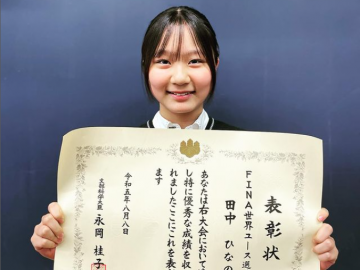 表彰状
FINA世界ユース選
田中 ひなの
あなたは右大会において
し特に優秀な成績を収
れましたここにこれを表
ます
令和五年八月八日
文部科学大臣 永岡 桂子